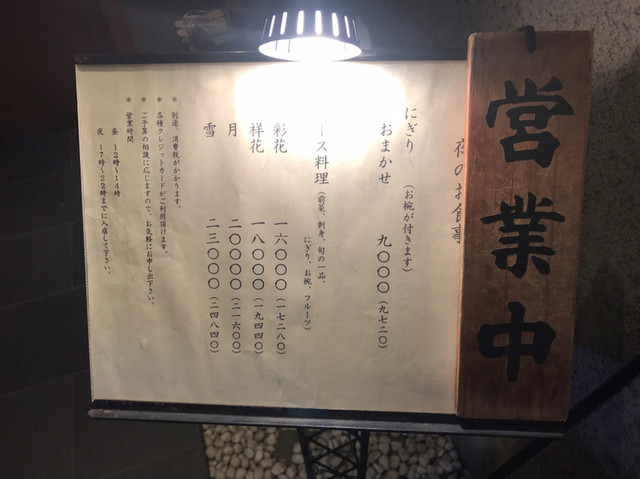 営業中
夜のお食事
にぎり (お椀が付きます)
おまかせ 九〇〇〇(九七二〇)
ース料理(前菜、刺身、旬の一品、
にぎり、お椀、フルーツ)
彩花 一六〇〇〇(一七二八〇)
祥花 一八〇〇〇(一九四四〇)
月 二〇〇〇〇(二一六〇〇)
雪 二三〇〇〇(二四八四〇)
* 別途、消費税がかかります。
* 各種クレジットカードがご利用頂けます。
* ご予算の相談に応じますので、お気軽にお申し出下さい。
* 営業時間
昼 12時〜14時
夜 17時〜22時までに入店して下さい。